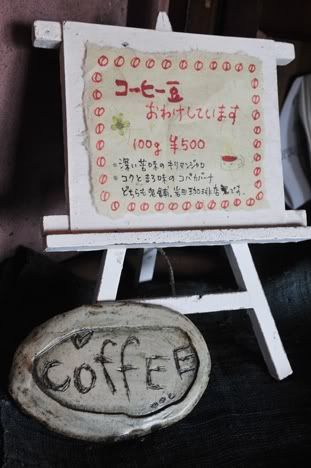 コーヒー豆
おわけしています
100g ¥500
•深い苦味のキリマンジャロ
•コクとまろ味のコパカバーナ
どちらも老舗、岩田珈琲店製です。
COFFEE